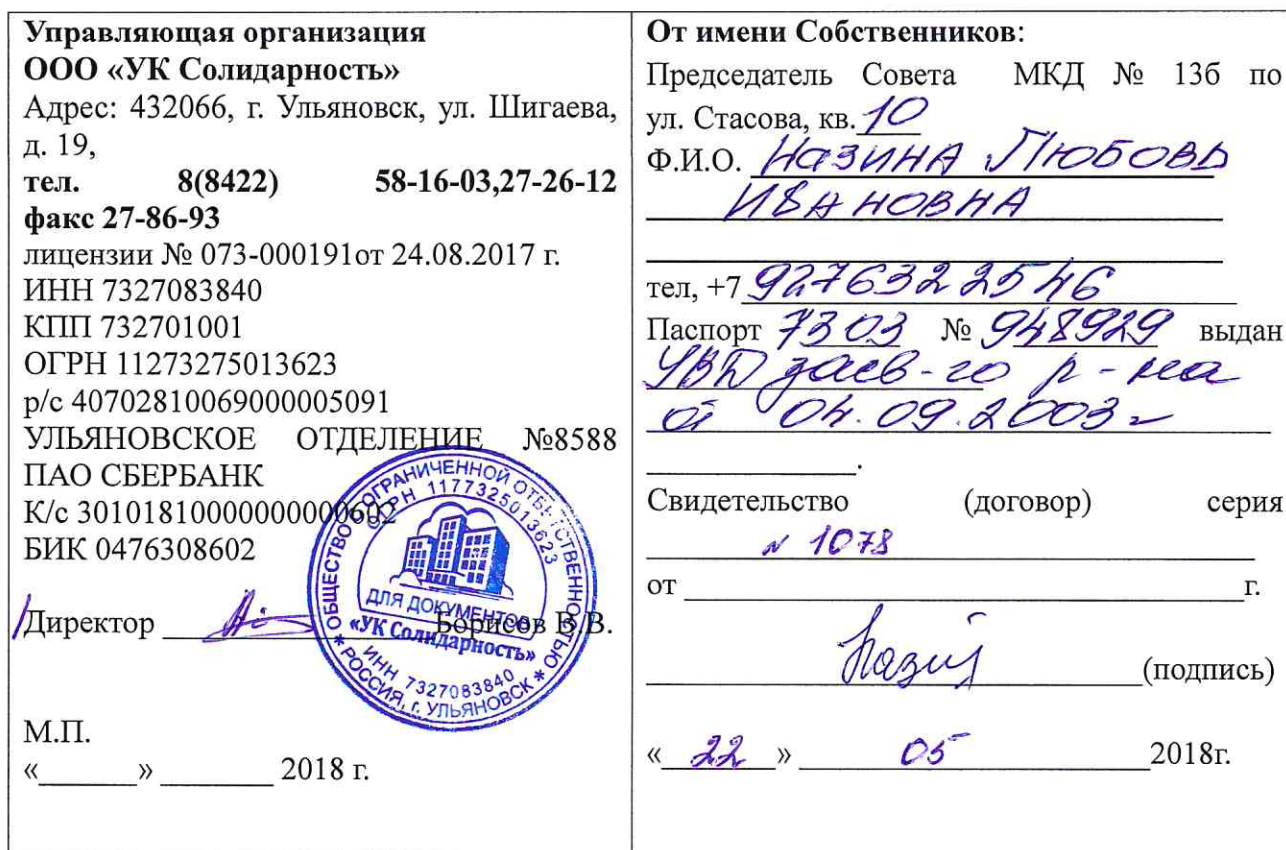 Управляющая организация
ООО «УК Солидарность»
Адрес: 432066, г. Ульяновск, ул. Шигаева,
д. 19,
тел. 8(8422) 58-16-03,27-26-12
факс 27-86-93
лицензии № 073-000191от 24.08.2017 г.
ИНН 7327083840
КПП 732701001
ОГРН 11273275013623
р/с 40702810069000005091
УЛЬЯНОВСКОЕ ОТДЕЛЕНИЕ №8588
ПАО СБЕРБАНК
К/с 30101810000000000602
БИК 0476308602
Директор Борисов В.В.
М.П.
«______» ________ 2018 г.
ОБЩЕСТВО С ОГРАНИЧЕННОЙ ОТВЕТСТВЕННОСТЬЮ
ОГРН 1177325013623
ДЛЯ ДОКУМЕНТОВ
«УК Солидарность»
ИНН 7327083840
* РОССИЯ, г. УЛЬЯНОВСК *
От имени Собственников:
Председатель Совета МКД № 13б по
ул. Стасова, кв. 10
Ф.И.О. Назина Любовь
Ивановна
тел, +7 9276322546
Паспорт 7303 № 948929 выдан
УВД засв-го р-на
от 04.09.2003г
Свидетельство (договор) серия
№ 1078
от г.
(подпись)
« 22 » 05 2018г.